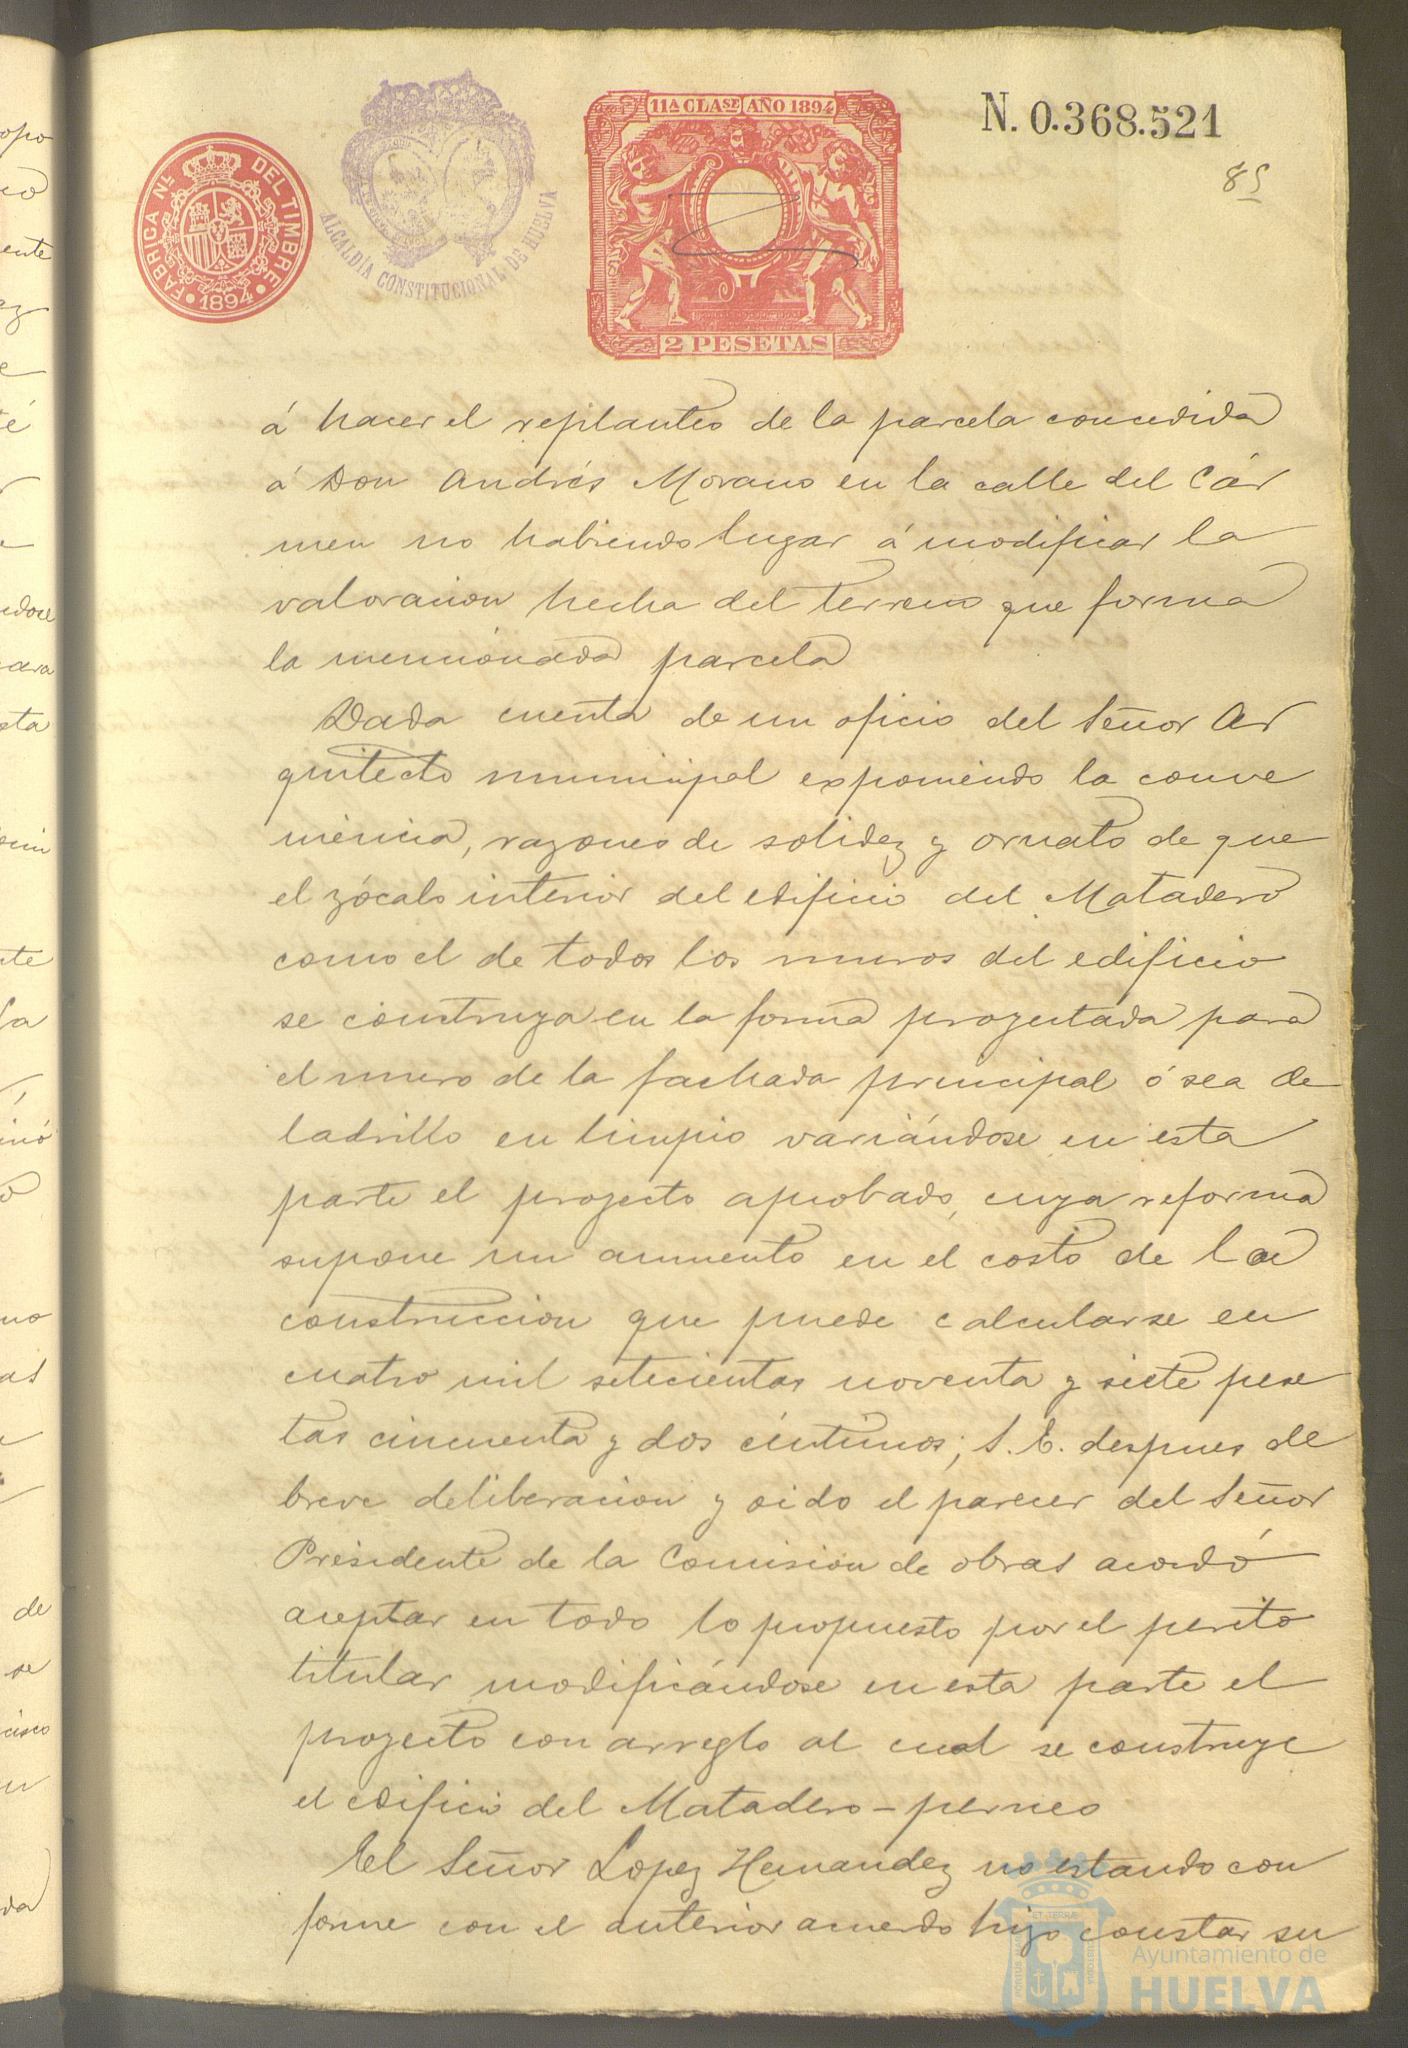 FABRICA Nᴸ DEL TIMBRE
1894
ALCALDÍA CONSTITUCIONAL DE HUELVA
11ᴬ CLASE AÑO 1894
2 PESETAS
N. 0.368.521
85
á hacer el replanteo de la parcela concedida
á Don Andrés Morano en la calle del Cár
men no habiendo lugar á modificar la
valoracion hecha del terreno que forma
la mencionada parcela
Dada cuenta de un oficio del Señor Ar
quitecto municipal exponiendo la conve
niencia, razones de solidez y ornato de que
el zócalo interior del edificio del Matadero
como el de todos los muros del edificio
se construya en la forma proyectada para
el muro de la fachada principal ó sea de
ladrillo en limpio variándose en esta
parte el proyecto aprobado, cuya reforma
supone un aumento en el costo de la
construccion que puede calcularse en
cuatro mil setecientas noventa y siete pese
tas cincuenta y dos céntimos; S. E. despues de
breve deliberacion y oido el parecer del Señor
Presidente de la Comision de obras acordó
aceptar en todo lo propuesto por el perito
titular modificándose en esta parte el
proyecto con arreglo al cual se construye
el edificio del Matadero-perneo
El Señor Lopez Hernandez no estando con
forme con el anterior acuerdo hizo constar su
Ayuntamiento de
HUELVA